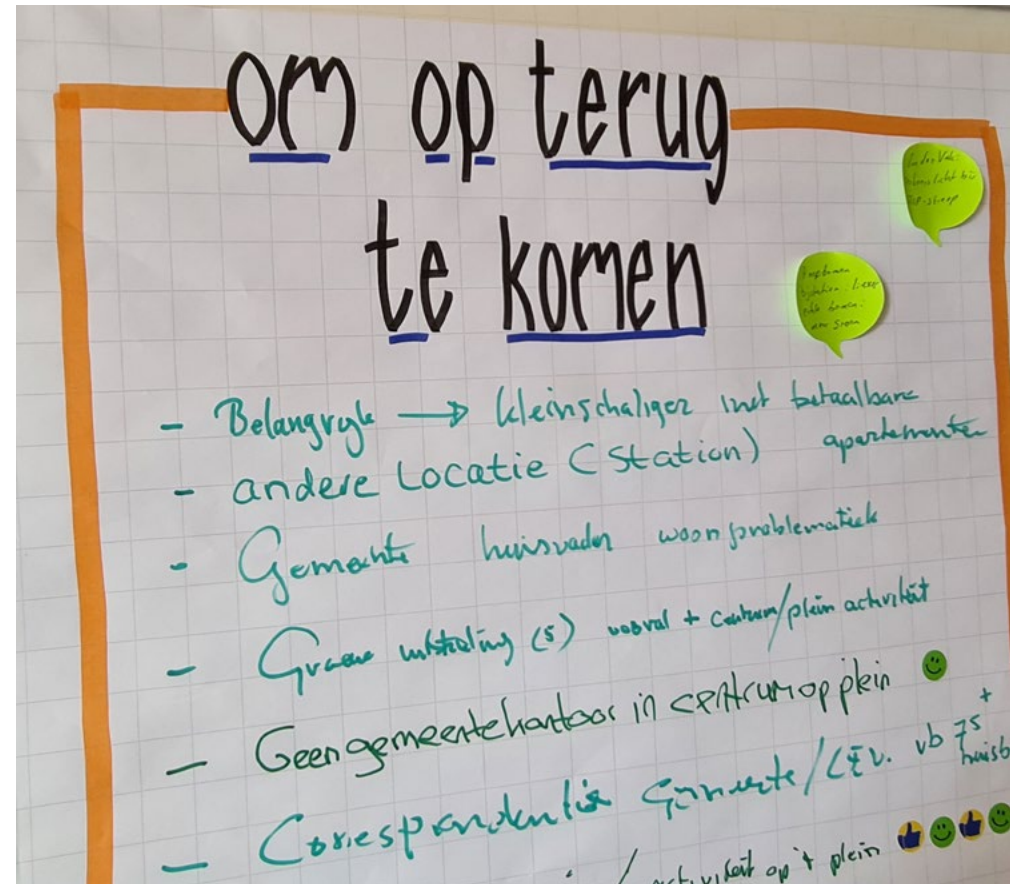 om op terug
te komen
- Belangryk → kleinschaliger met betaalbare
apartementen
- andere Locatie (Station)
- Gemeente huisvader woonproblematiek
- Groene uitstraling (5) vooral + centrum/plein activiteit
- Geen gemeentekantoor in centrum op plein
- Correspondentie Gemeente/ vb 75+
huisb
activiteit op 't plein